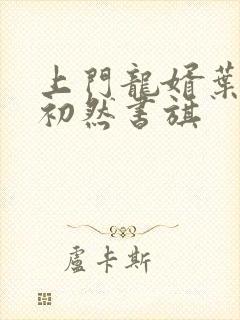 上門龍婿葉
初然書旗
盧卡斯